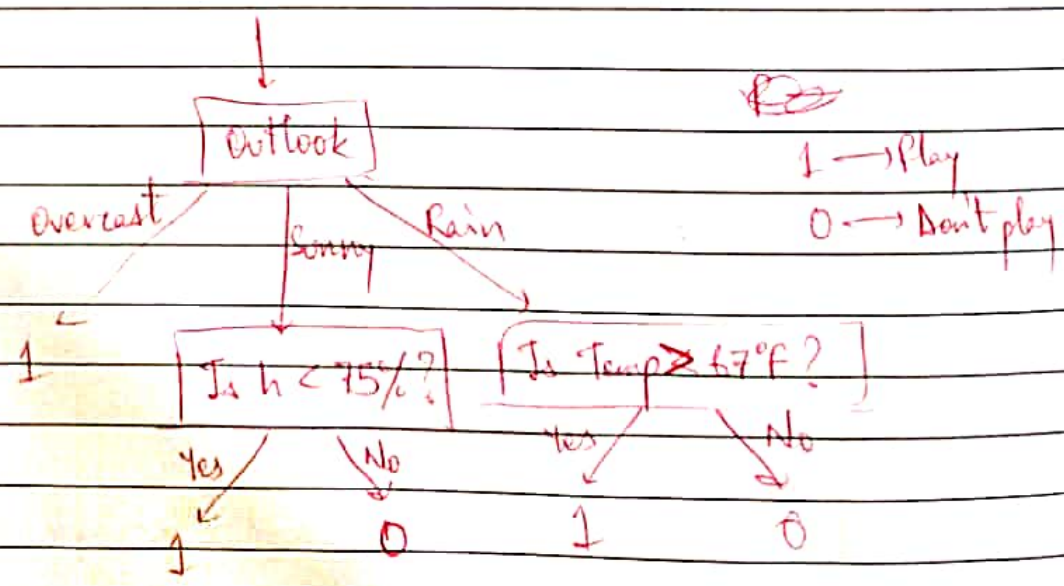 Outlook
1 → Play
0 → Don't play
Overcast
Sunny
Rain
1
Is h < 75%?
Is Temp > 67°F?
Yes
No
Yes
No
1
0
1
0